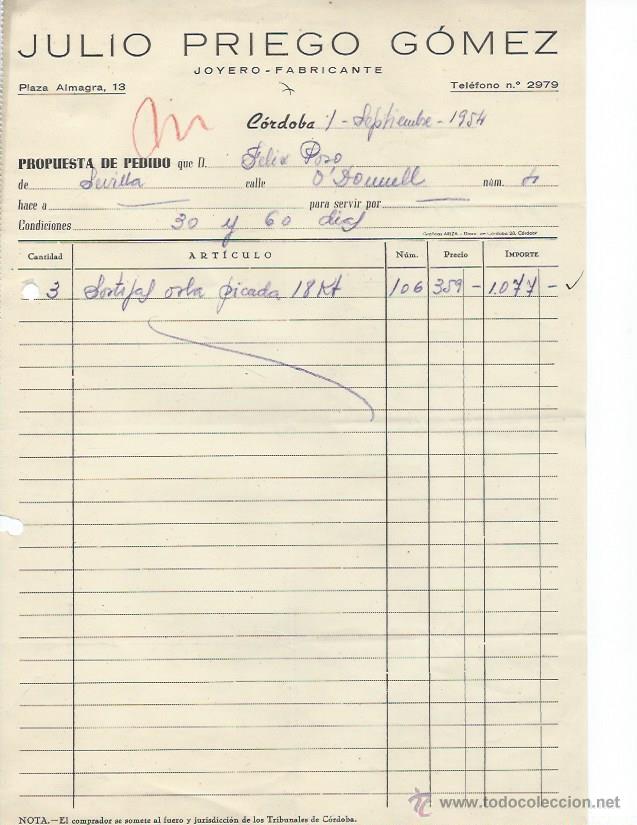 JULIO PRIEGO GÓMEZ
JOYERO-FABRICANTE
Plaza Almagra, 13 Teléfono n.º 2979
Córdoba 1 - Septiembre - 1954
PROPUESTA DE PEDIDO que D. Felix Pozo
de Sevilla calle O'Donnell núm.
hace a — para servir por —
Condiciones 30 y 60 dias
Gráficas ARIZA - Córdoba
Cantidad ARTÍCULO Núm. Precio IMPORTE
3 Sortijas orla picada 18 Kt 106 359 - 1.077 -
NOTA.—El comprador se somete al fuero y jurisdicción de los Tribunales de Córdoba.
www.todocoleccion.net